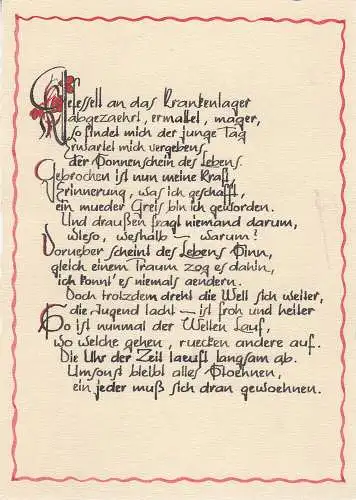 Gefesselt an das Krankenlager
abgezaehrt, ermattet, mager,
so findet mich der junge Tag
Erwartet mich vergebens
der Sonnenschein des Lebens.
Gebrochen ist nun meine Kraft,
Erinnerung, was ich geschafft,
ein mueder Greis bin ich geworden.
Und draußen fragt niemand darum,
wieso, weshalb – warum?
Vorueber scheint des Lebens Sinn,
gleich einem Traum zog es dahin,
ich konnt' es niemals aendern.
Doch trotzdem dreht die Welt sich weiter,
die Jugend lacht – ist froh und heiter
So ist nunmal der Welten Lauf,
wo welche gehen, ruecken andere auf.
Die Uhr der Zeit laeuft langsam ab.
Umsonst bleibt alles Stoehnen,
ein jeder muß sich dran gewoehnen.